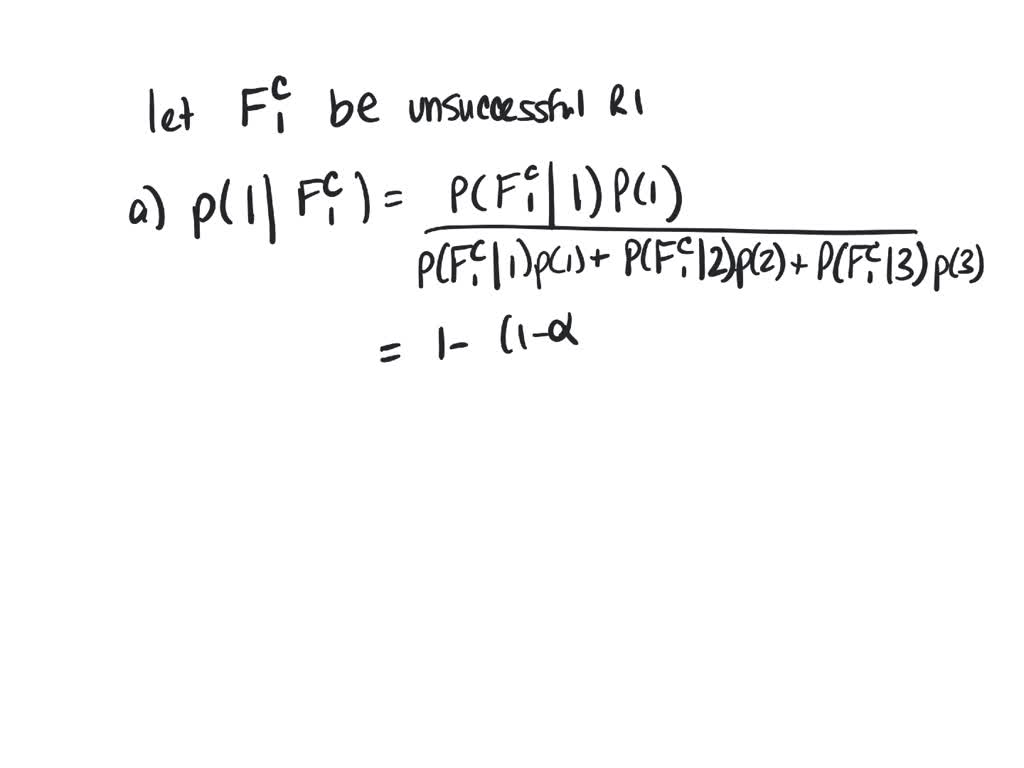 let F₁ᶜ be unsuccessful R1
a) p(1| F₁ᶜ) = P(F₁ᶜ|1)P(1)
p(F₁ᶜ|1)p(1)+ P(F₁ᶜ|2)p(2)+ P(F₁ᶜ|3)p(3)
= 1- (1-α